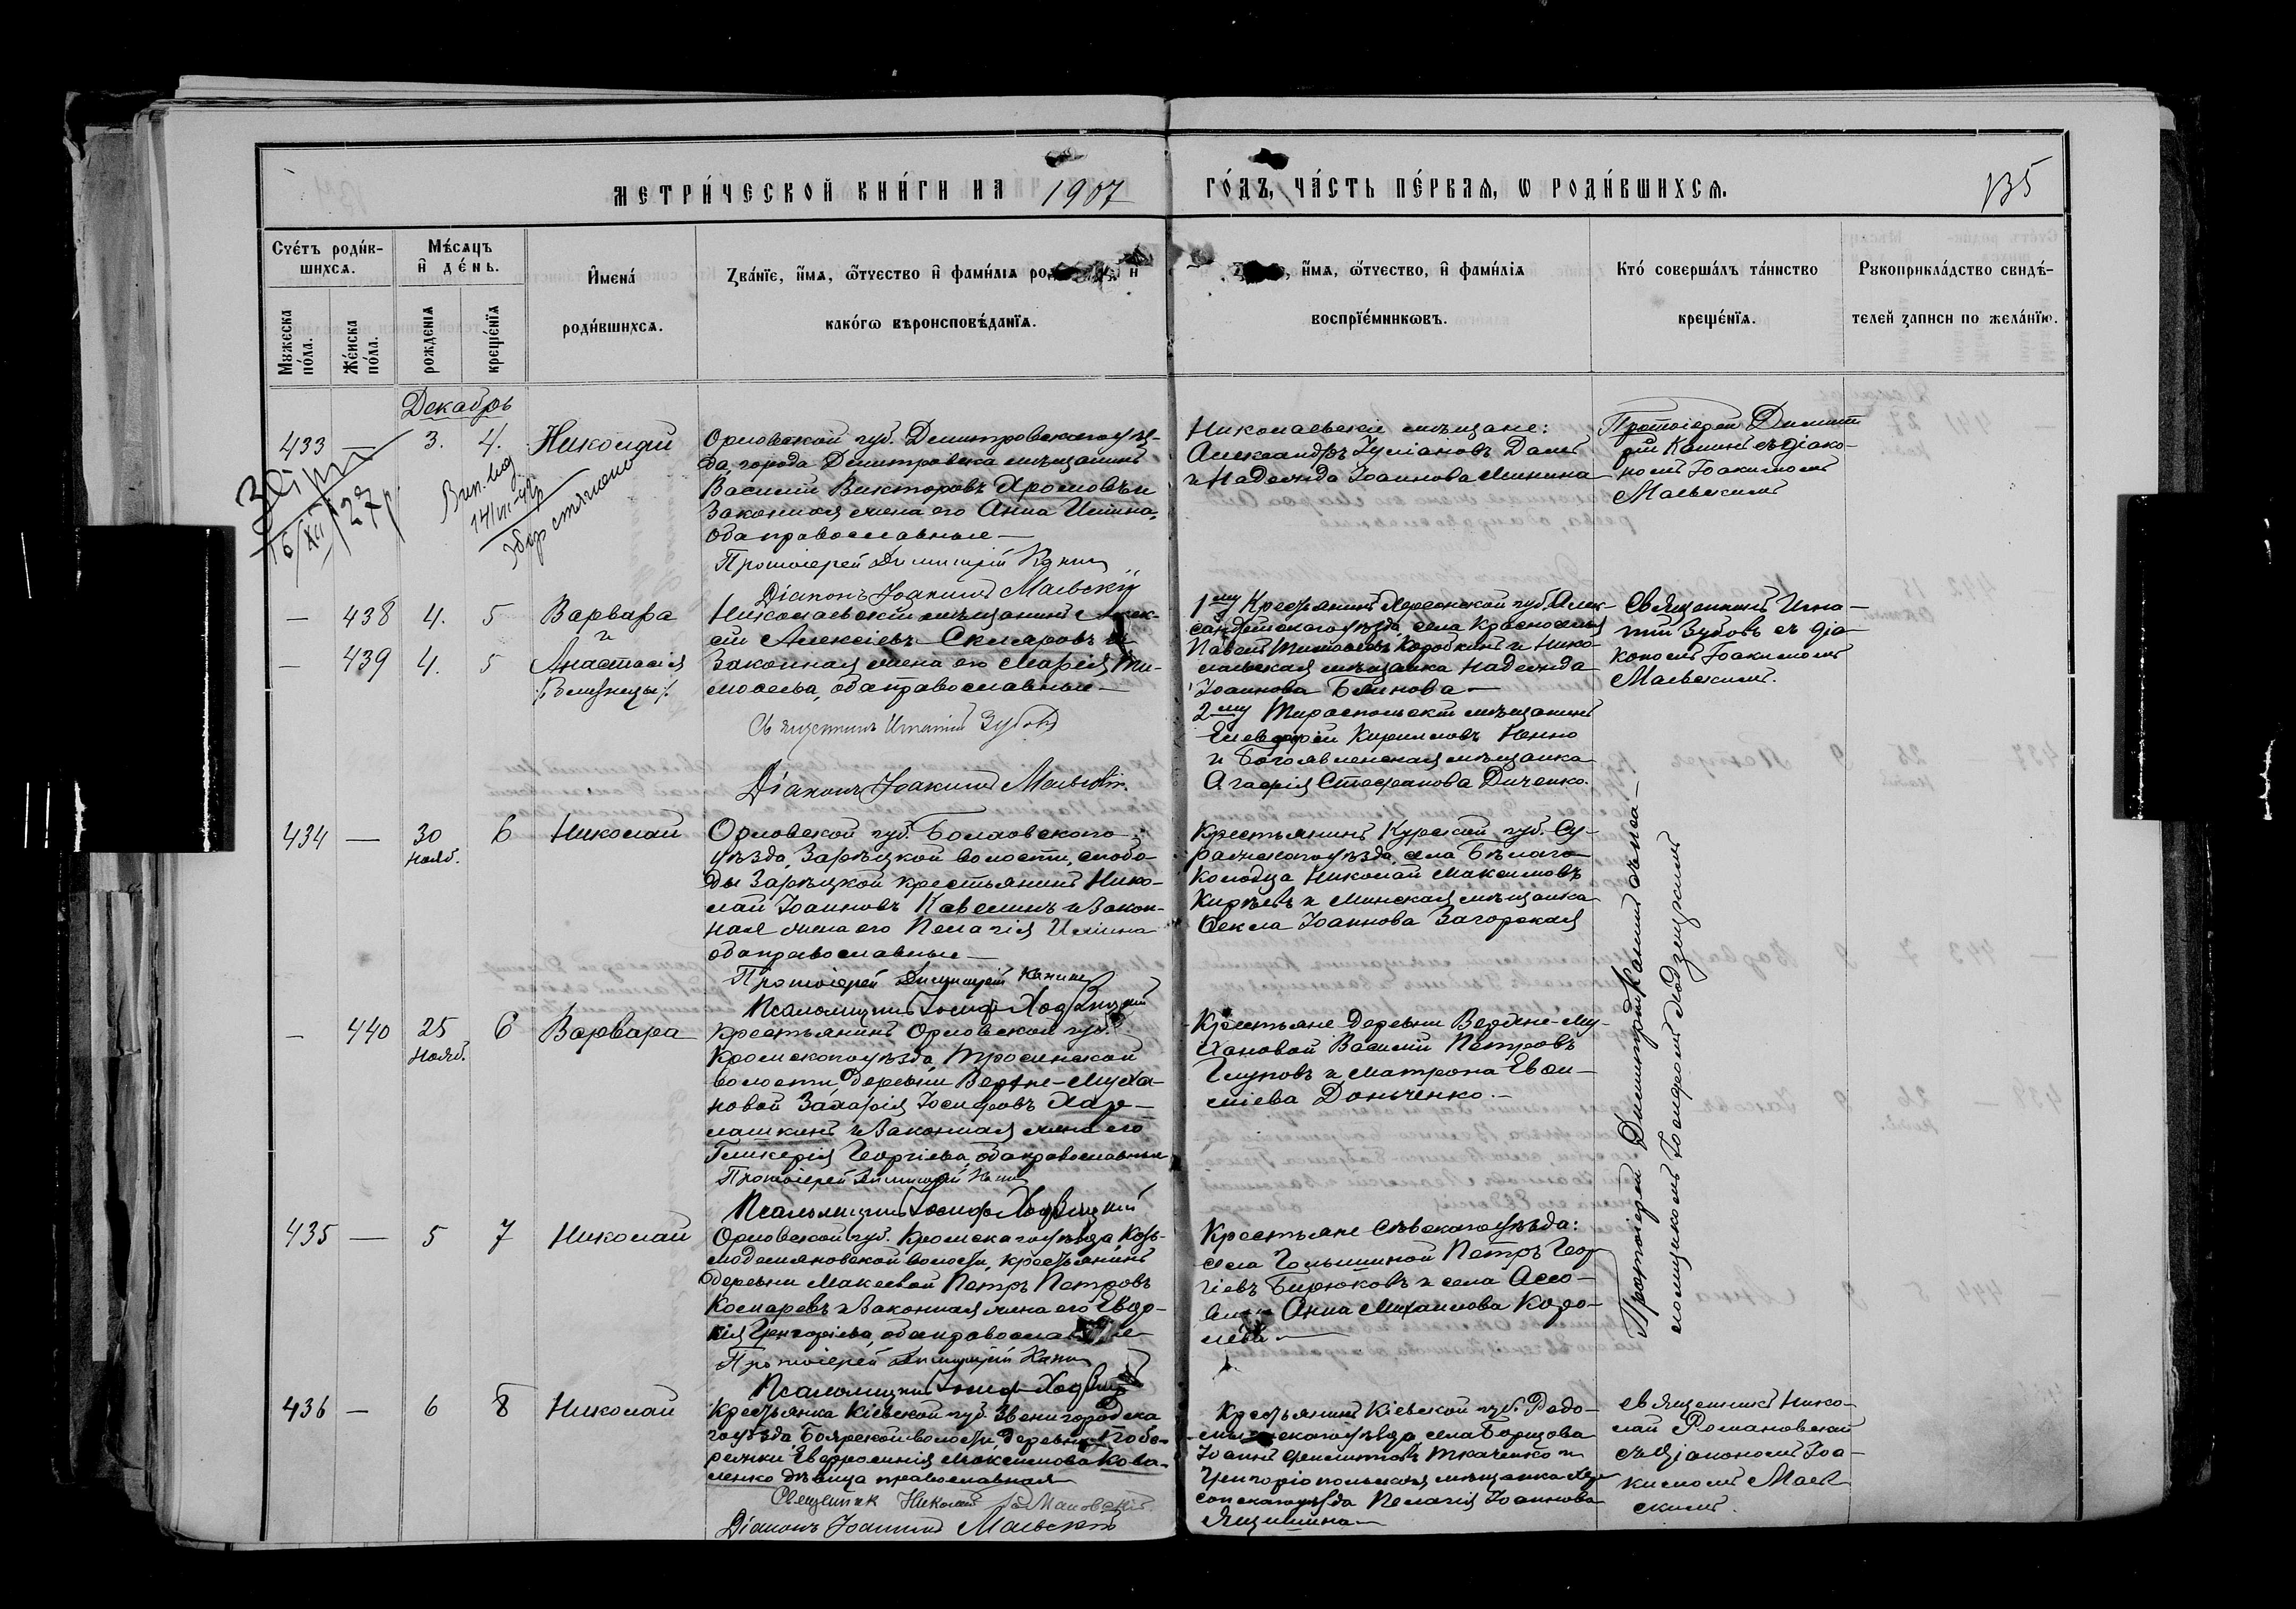 МЕТРИ́ЧЕСКОЙ КНИ́ГИ НА 1907 ГО́ДЪ, ЧА́СТЬ ПЕ́РВАѦ, Ѡ РОДИ́ВШИХСѦ. 135
Сче́тъ роди́в-
шихсѧ.
Мꙋжеска по́ла.
Же́нска по́ла.
Мѣ́сѧцъ
и҆ де́нь.
рожденїѧ
креще́нїѧ
И҆мена́
роди́вшихсѧ.
Зва́нїе, и҆́мѧ, ѻ҆́тчество и҆ фами́лїѧ и҆
како́гѡ вѣроисповѣ́данїѧ.
и҆́мѧ, ѻ҆́тчество, и҆ фами́лїѧ
воспрїе́мникѡвъ.
Кто́ соверша́лъ та́инство
креще́нїѧ.
Рꙋкоприкла́дство свидѣ́-
телей записи по жела́нїю.
Декабрь
433 — 3. 4. Николай
Орловской губ. Дмитровскаго уѣз-
да, города Дмитровска мѣщанинъ
Василій Викторовъ Хромовъ и
Законная жена его Анна Ильина,
оба православные —
Протоіерей Димитрій Канин
Діаконъ Іоакимъ Маевскій
Николаевскіе мѣщане:
Александръ Іуліановъ
и Надежда Іоаннова
Протоіерей Димит-
рій Канинъ съ діако-
номъ Іоакимомъ
Маевскимъ
16/XII 27 р.
Вип. вид.
14/VII
збор стягнено
— 438 4. 5 Варвара
и
— 439 4. 5 Анастасія
/:Близнецы:/
Николаевскій мѣщанинъ Алек-
сѣй Алексіевъ Скляровъ и
Законная жена его Марія Ти-
моѳеева, оба православные —
Священникъ Игнатій Зубовъ
Діаконъ Іоакимъ Маевскій.
1му Крестьянинъ Херсонской губ. Алек-
сандрійскаго уѣзда, села Красноселья
Павелъ Тимоѳеевъ Коробкинъ и Нико-
лаевская мѣщанка Надежда
Іоаннова Блинова —
2му Тираспольскій мѣщанинъ
Елевѳерій Кирилловъ Ненно
и Богоявленская мѣщанка
Агафія Стефанова Диченко.
Священникъ Игна-
тій Зубовъ съ діа-
кономъ Іоакимомъ
Маевскимъ.
434 — 30 6 Николай
Нояб.
Орловской губ. Болховского
уѣзда, Зарѣцкой волости, слобо-
ды Зарѣцкой крестьянинъ Нико-
лай Іоанновъ Кавелинъ и Закон-
ная жена его Пелагія Ильина
оба православные —
Протоіерей Димитрій Канин
Псаломщикъ Іосифъ
Крестьянинъ Курской губ. Су-
джанскаго уѣзда, села Бѣлаго
Колодца Николай Максимовъ
Кирѣевъ и Минская мѣщанка
Ѳекла Іоаннова Загорская
Протоіерей Димитрій Канинъ съ пса-
ломщикомъ Іосифомъ
— 440 25 6 Варвара
Нояб.
Крестьянинъ Орловской губ.
Кромскаго уѣзда, Тросненской
волости, деревни Верхне-Муха-
новой Захарія Іосифовъ Хар-
лашкинъ и Законная жена его
Гликерія Георгіева, оба православные
Протоіерей Димитрій Канин
Псаломщикъ Іосифъ
Крестьяне деревни Верхне-Му-
хановой Василій Петровъ
Глуповъ и Матрона Евѳи-
міева Донченко. —
435 — 5 7 Николай
Орловской губ. Кромскаго уѣзда Козь-
модемьяновской волости, крестьянинъ
деревни Макеевой Петръ Петровъ
Комаревъ и Законная жена его Евдо-
кія Григоріева, оба православные
Протоіерей Димитрій Канин
Псаломщикъ Іосифъ
Крестьяне Сѣвскаго уѣзда:
села Гольшиной Петръ Геор-
гіевъ Бирюковъ и села
Анна Михаилова Коро-
лева —
436 — 6 8 Николай
Крестьянка Кіевской губ. Звенигородска-
го уѣзда, Боярской волости, деревни
Евфросинія Максимова Кова-
ленко дѣвица православная
Священникъ Николай Романовскій
Діаконъ Іоакимъ Маевскій
Крестьянинъ Кіевской губ. Радо-
мысльскаго уѣзда села Борщова
Іоаннъ Ткаченко и
Григоріопольская мѣщанка Хер-
сонскаго уѣзда Пелагія Іоаннова
Священникъ Нико-
лай Романовскій
съ діакономъ Іоа-
кимомъ Маев-
скимъ.